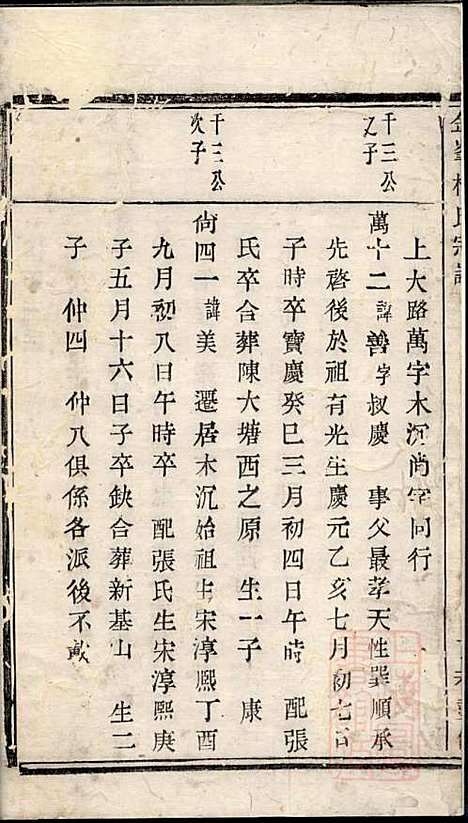 上大路萬字木沉尚字同行
千三公之子
萬十二諱善字叔慶　事父最孝天性巽順承
先啓後於祖有光生慶元乙亥七月初七日
子時卒寶慶癸巳三月初四日午時　配張
氏卒合葬陳大塘西之原　生一子　康
千三公次子
尚四一諱美　遷居木沉始祖生宋淳熙丁酉
九月初八日午時卒　配張氏生宋淳熙庚
子五月十六日子卒缺合葬新基山　生二
子　仲四　仲八俱係各派後不載